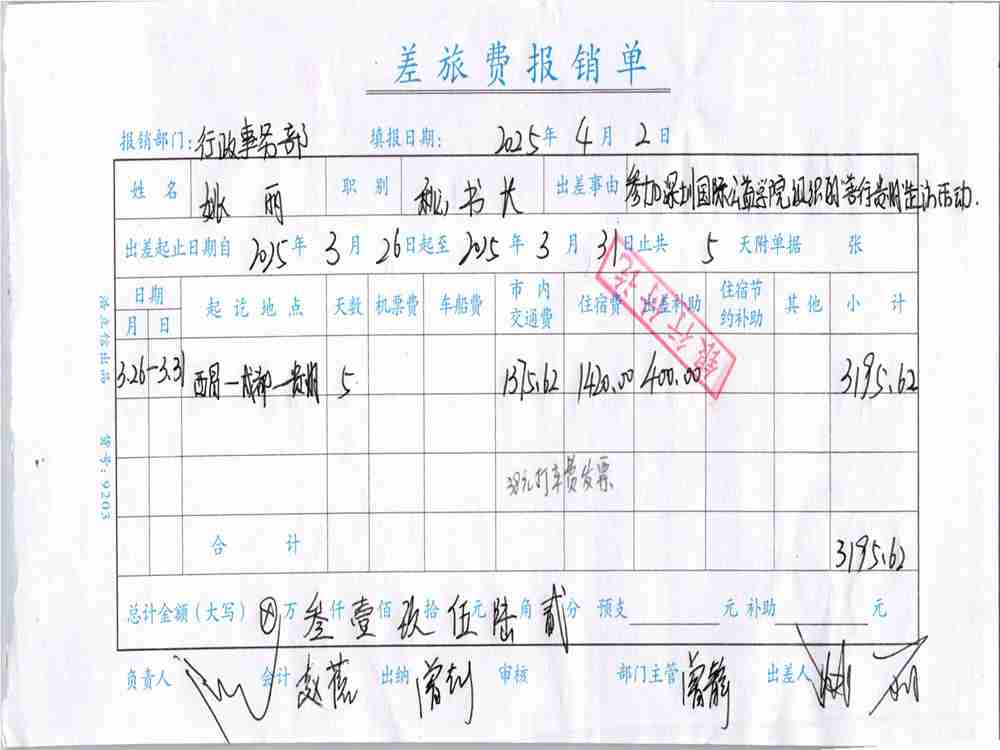 差旅费报销单
报销部门：行政事务部 填报日期： 2025年 4月 2日
姓名 姚丽 职别 秘书长 出差事由 参加深圳国际公益学院组织的善行贵州走访活动.
出差起止日期自 2025年 3月 26日起至 2025年 3月 31日止共 5 天附单据 张
日期 起讫地点 天数 机票费 车船费 市内交通费 住宿费 出差补助 住宿节约补助 其他 小计
月 日
3.26-3.31 西昌-成都-贵州 5 1375.62 1420.00 400.00 3195.62
银行付讫
38元打车费发票
合计 3195.62
总计金额（大写）⊗万叁仟壹佰玖拾伍元陆角贰分 预支 元 补助 元
负责人 会计 赵 出纳 曾 审核 部门主管 静 出差人 姚丽
货号：9203